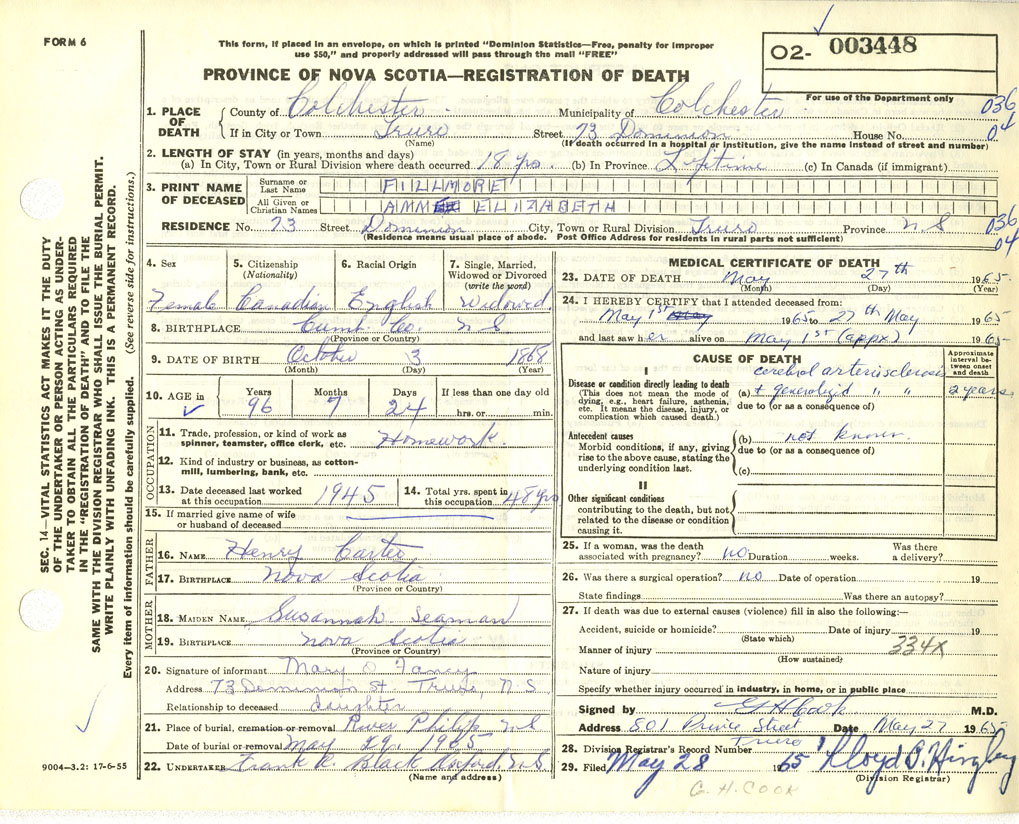 FORM 6
This form, if placed in an envelope, on which is printed "Dominion Statistics—Free, penalty for improper
use $50," and properly addressed will pass through the mail "FREE"
PROVINCE OF NOVA SCOTIA—REGISTRATION OF DEATH
02- 003448
For use of the Department only
036
04
1. PLACE OF DEATH County of Colchester Municipality of Colchester
If in City or Town Truro Street 73 Dominion House No.
(Name) (If death occurred in a hospital or institution, give the name instead of street and number)
2. LENGTH OF STAY (in years, months and days)
(a) In City, Town or Rural Division where death occurred 18 yrs (b) In Province Lifetime (c) In Canada (if immigrant)
3. PRINT NAME OF DECEASED
Surname or Last Name FILLMORE
All Given or Christian Names ANN ELIZABETH
RESIDENCE No. 73 Street Dominion City, Town or Rural Division Truro Province N S
(Residence means usual place of abode. Post Office Address for residents in rural parts not sufficient)
036
04
4. Sex Female
5. Citizenship (Nationality) Canadian
6. Racial Origin English
7. Single, Married, Widowed or Divorced (write the word) Widowed
8. BIRTHPLACE Cumb. Co. N S
(Province or Country)
9. DATE OF BIRTH October 3 1868
(Month) (Day) (Year)
10. AGE in Years 96 Months 7 Days 24 If less than one day old hrs. or min.
OCCUPATION
11. Trade, profession, or kind of work as spinner, teamster, office clerk, etc. Homework
12. Kind of industry or business, as cotton-mill, lumbering, bank, etc.
13. Date deceased last worked at this occupation 1945
14. Total yrs. spent in this occupation 48 yrs
15. If married give name of wife or husband of deceased
FATHER
16. NAME Henry Carter
17. BIRTHPLACE Nova Scotia
(Province or Country)
MOTHER
18. MAIDEN NAME Susannah Seaman
19. BIRTHPLACE Nova Scotia
(Province or Country)
20. Signature of informant Mary
Address 73 Dominion St Truro, N.S
Relationship to deceased daughter
21. Place of burial, cremation or removal River Philip N.S
Date of burial or removal May 29, 1965
22. UNDERTAKER Frank R. Black Oxford N.S.
(Name and address)
MEDICAL CERTIFICATE OF DEATH
23. DATE OF DEATH May 27th 1965
(Month) (Day) (Year)
24. I HEREBY CERTIFY that I attended deceased from:
May 1st 1965 to 27th May 1965
and last saw her alive on May 1st (appx) 1965
CAUSE OF DEATH
Approximate interval between onset and death
I
Disease or condition directly leading to death
(This does not mean the mode of dying, e.g., heart failure, asthenia, etc. It means the disease, injury, or complication which caused death.)
cerebral arteriosclerosis
(a) + generalized " " 2 years
due to (or as a consequence of)
Antecedent causes
Morbid conditions, if any, giving rise to the above cause, stating the underlying condition last.
(b) not known
due to (or as a consequence of)
(c)
II
Other significant conditions
contributing to the death, but not related to the disease or condition causing it.
25. If a woman, was the death associated with pregnancy? no Duration weeks. Was there a delivery?
26. Was there a surgical operation? no Date of operation 19
State findings Was there an autopsy?
27. If death was due to external causes (violence) fill in also the following:—
Accident, suicide or homicide? Date of injury 19
(State which)
334X
Manner of injury
(How sustained)
Nature of injury
Specify whether injury occurred in industry, in home, or in public place
Signed by G H Cook M.D.
Address 801 Prince Street Date May 27 1965
Truro
28. Division Registrar's Record Number
29. Filed May 28 1965 Lloyd
(Division Registrar)
G. H. COOK
SEC. 14—VITAL STATISTICS ACT MAKES IT THE DUTY
OF THE UNDERTAKER OR PERSON ACTING AS UNDER-
TAKER TO OBTAIN ALL THE PARTICULARS REQUIRED
IN THE "REGISTRATION OF DEATH" AND TO FILE THE
SAME WITH THE DIVISION REGISTRAR WHO SHALL ISSUE THE BURIAL PERMIT.
WRITE PLAINLY WITH UNFADING INK. THIS IS A PERMANENT RECORD.
Every item of information should be carefully supplied. (See reverse side for instructions.)
9004-3.2: 17-6-55